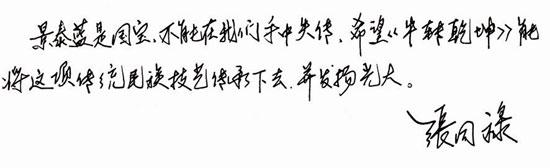 景泰蓝是国宝.不能在我们手中失传.希望《牛转乾坤》能
将这项传统民族技艺传承下去.并发扬光大。
張同禄